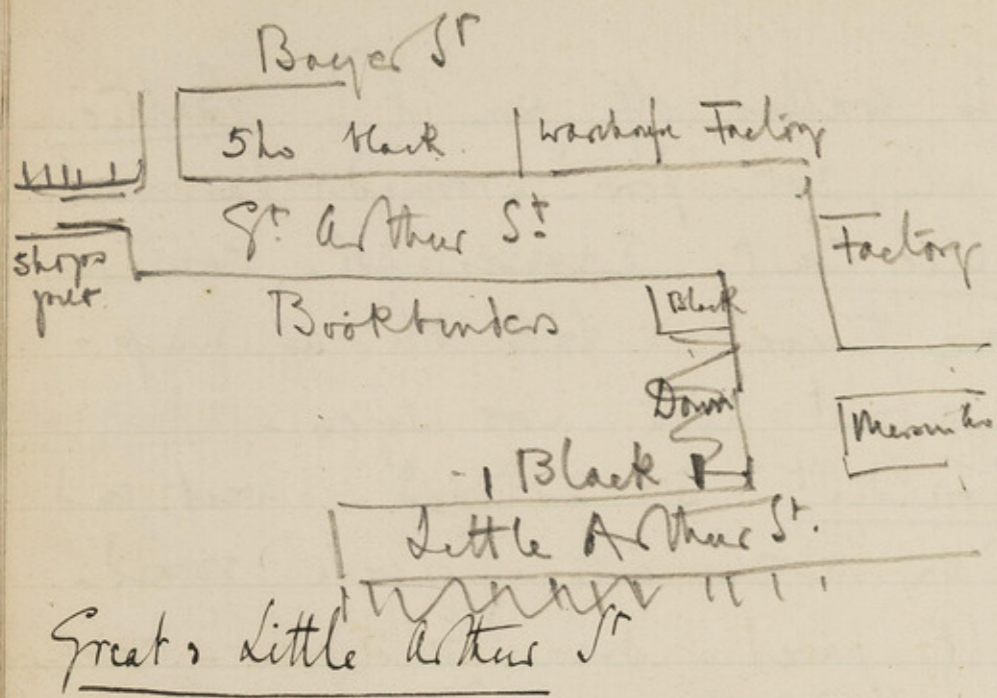 Bayer St
5 ho black
warehouse Factory
Gt Arthur St
shops
Factory
Bookbinders
Black
Down
Black
Little Arthur St.
Great & Little Arthur St